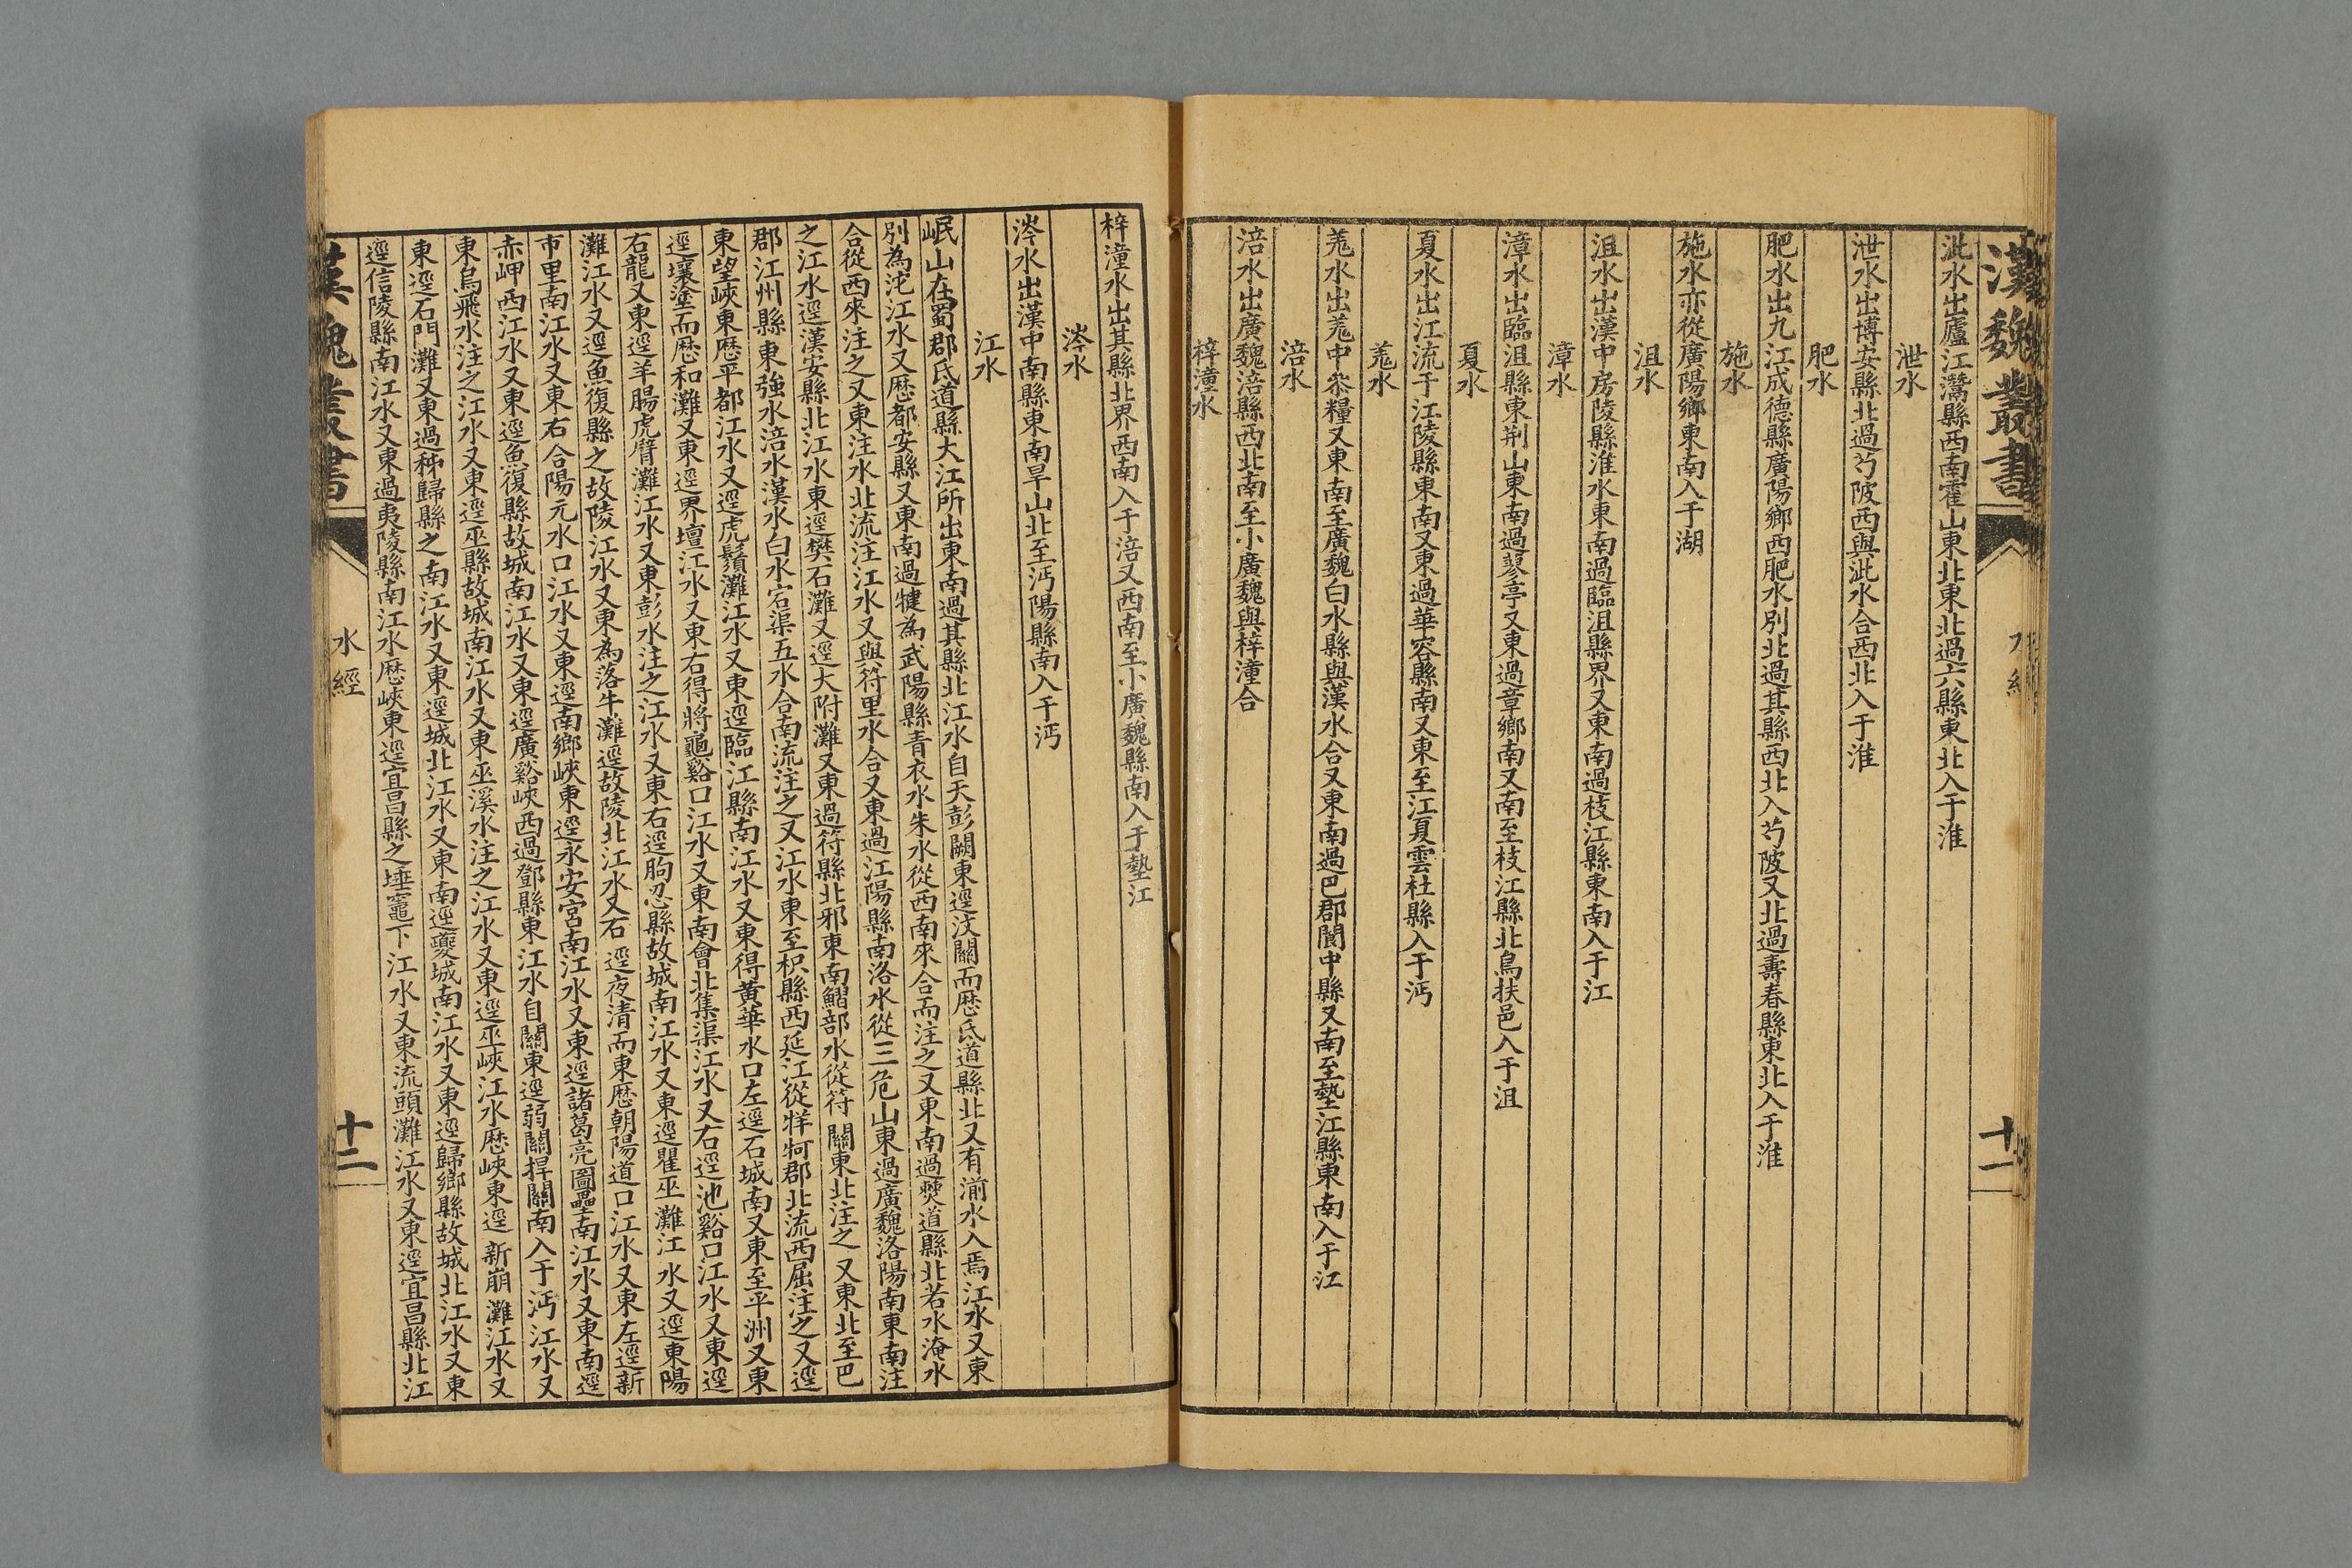 漢魏叢書
十一
沘水出廬江灊縣西南霍山東北東北過六縣東北入于淮
泄水
泄水出博安縣北過芍陂西與沘水合西北入于淮
肥水
肥水出九江成德縣廣陽鄉西肥水別北過其縣西北入芍陂又北過壽春縣東北入于淮
施水
施水亦從廣陽鄉東南入于湖
沮水
沮水出漢中房陵縣淮水東南過臨沮縣界又東南過枝江縣東南入于江
漳水
漳水出臨沮縣東荆山東南過蓼亭又東過章鄉南又南至枝江縣北烏扶邑入于沮
夏水
夏水出江流于江陵縣東南又東過華容縣南又東至江夏雲杜縣入于沔
羗水
羗水出羗中叅糧又東南至廣魏白水縣與漢水合又東南過巴郡閬中縣又南至墊江縣東南入于江
涪水
涪水出廣魏涪縣西北南至小廣魏與梓潼合
梓潼水
梓潼水出其縣北界西南入于涪又西南至小廣魏縣南入于墊江
涔水
涔水出漢中南縣東南旱山北至沔陽縣南入于沔
江水
岷山在蜀郡氐道縣大江所出東南過其縣北江水自天彭闕東逕汶關而歷氐道縣北又有湔水入焉江水又東
別為沱江水又歷都安縣又東南過犍為武陽縣青衣水朱水從西南來合而注之又東南過僰道縣北若水淹水
合從西來注之又東注水北流注江水又與符里水合又東過江陽縣南洛水從三危山東過廣魏洛陽南東南注
之江水逕漢安縣北江水東逕樊石灘又逕大附灘又東過符縣北邪東南鰼部水從符關東北注之又東北至巴
郡江州縣東強水涪水漢水白水宕渠五水合南流注之又江水東至枳縣西延江從牂牁郡北流西屈注之又逕
東望峽東歷平都江水又逕虎鬚灘江水又東逕臨江縣南江水又東得黃華水口左逕石城南又東至平洲又東
逕壤塗而歷和灘又東逕界壇江水又東右得將龜谿口江水又東南會北集渠江水又右逕池谿口江水又東逕
右龍又東逕羊腸虎臂灘江水又東彭水注之江水又東右逕朐忍縣故城南江水又東逕瞿巫灘江水又逕東陽
灘江水又逕魚復縣之故陵江水又東為落牛灘逕故陵北江水又石逕夜清而東歷朝陽道口江水又東左逕新
市里南江水又東右合陽元水口江水又東逕南鄉峽東逕永安宮南江水又東逕諸葛亮圖壘南江水又東南逕
赤岬西江水又東逕魚復縣故城南江水又東逕廣谿峽西過鄧縣東江水自關東逕弱關捍關南入于沔江水又
東烏飛水注之江水又東逕巫縣故城南江水又東巫溪水注之江水又東逕巫峽江水歷峽東逕新崩灘江水又
東逕石門灘又東過秭歸縣之南江水又東逕城北江水又東南逕夔城南江水又東逕歸鄉縣故城北江水又東
逕信陵縣南江水又東過夷陵縣南江水歷峽東逕宜昌縣之埵竈下江水又東流頭灘江水又東逕宜昌縣北江
漢魏叢書
水經
十二